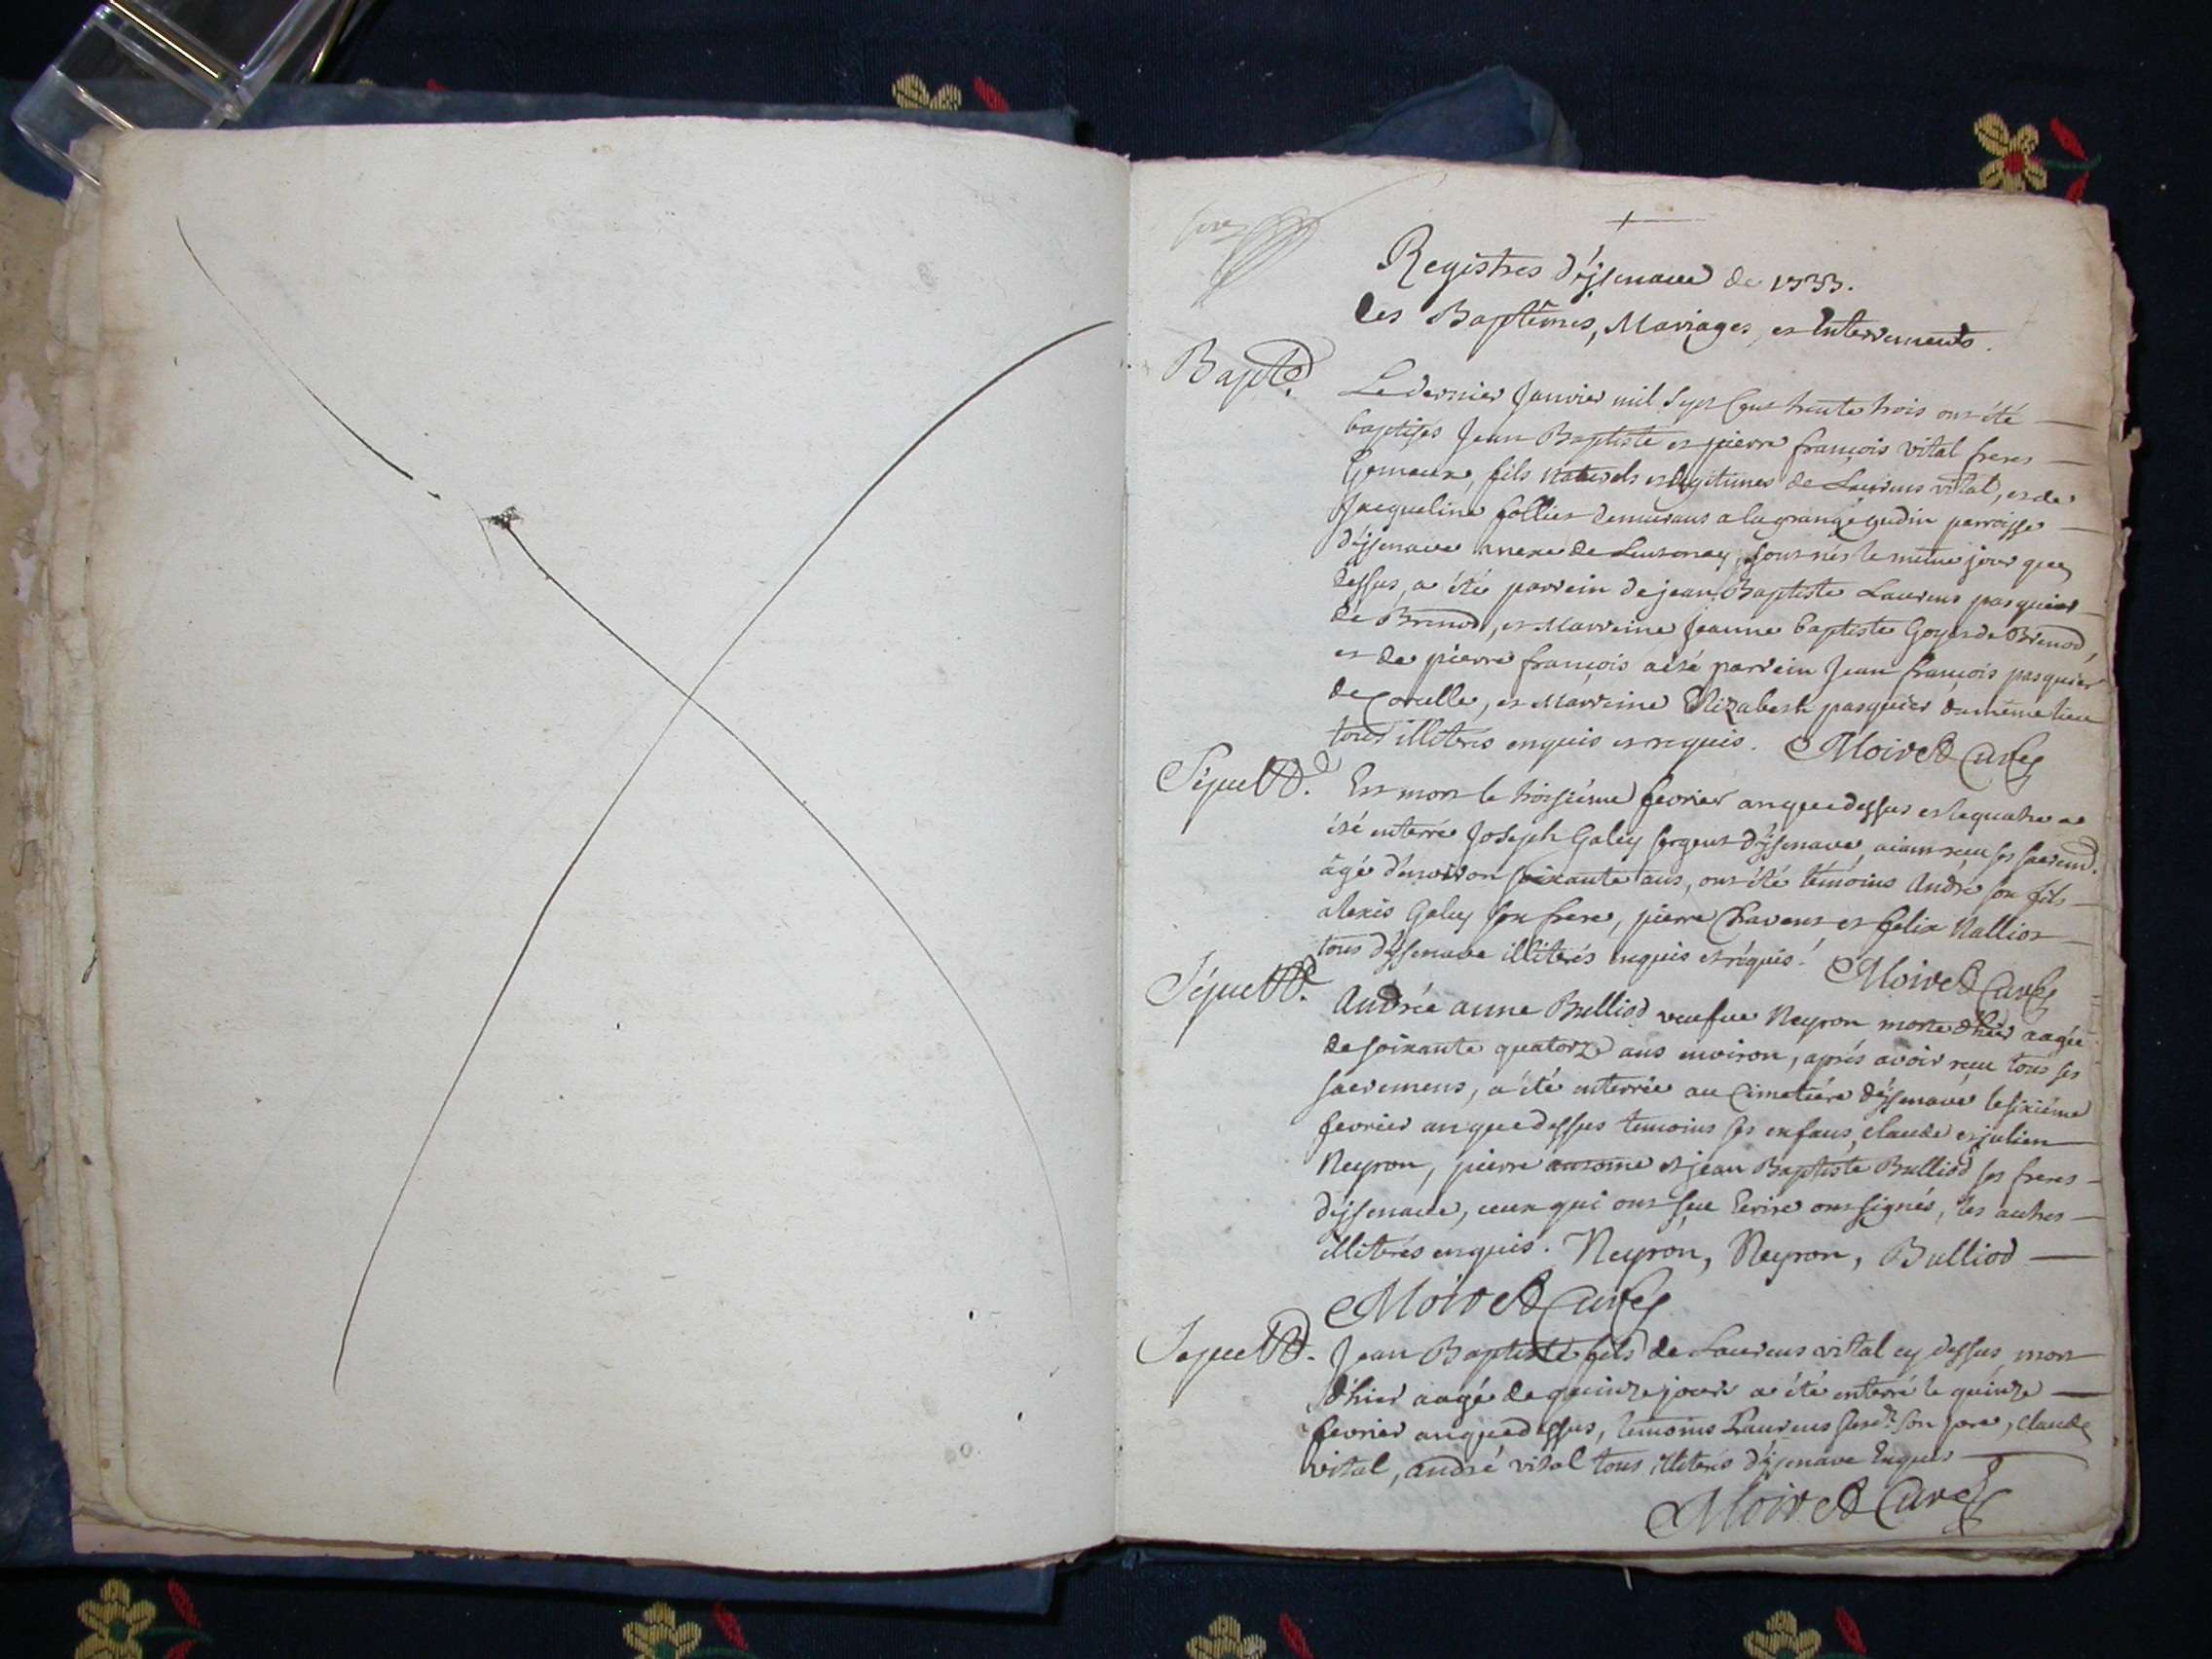 Registres d'éÿsenave de 1733.
des Baptêmes, Mariages, et Enterrements.
Bapte. Le dernier Janvier mil Sept Cent trente trois ont été
baptisés Jean Baptiste et pierre françois vital freres
Gemeaux, fils naturels et legitimes de Laurens vital, et de
Jacqueline follier demeurans a la grange gudin parroisse
d'éÿsenave annexe de , sont nés le même jour que
dessus, a été parrein de jean Baptiste Laurens pasquier
de Brenod, et Marreine Jeanne baptiste Goyet de Brenod,
et de pierre françois a été parrein Jean françois pasquier
de Corcelle, et Marreine Elizabeth pasquier du même lieu
tous illiterés enquis et requis. Moiret Curé
Sépult. Est mort le troisiéme fevrier an que dessus et le quatre a
été enterré Joseph Galey sergent d'éÿsenave, aiant receu ses sacrem.
âgé d'environ soixante ans, ont été témoins André son fils
alexis Galey son frere, pierre Chavent et felix Nalliot
tous d'éÿsenave illiterés enquis et réquis. Moiret Curé
Sépult. Andrée anne Bulliod veufue Neyron morte d'hier aagée
de soixante quatorze ans environ, aprés avoir receu tous ses
sacremens, a été enterrée au Cimetiére d'éÿsenave le sixiéme
fevrier an que dessus temoins ses enfans, claude et julien
Neyron, pierre antoine et jean Baptiste Bulliod ses freres
d'éÿsenave, ceux qui ont sceu Ecrire ont signés, les autres
illiterés enquis. Neyron, Neyron, Bulliod
Moiret Curé
Sepult. Jean Baptiste fils de Laurens vital cy dessus mort
d'hier aagé de quinze jours a été enterré le quinze
fevrier an que dessus, temoins Laurens susd. son pere, claude
vital, andré vital tous illiterés d'éÿsenave Enquis
Moiret Curé